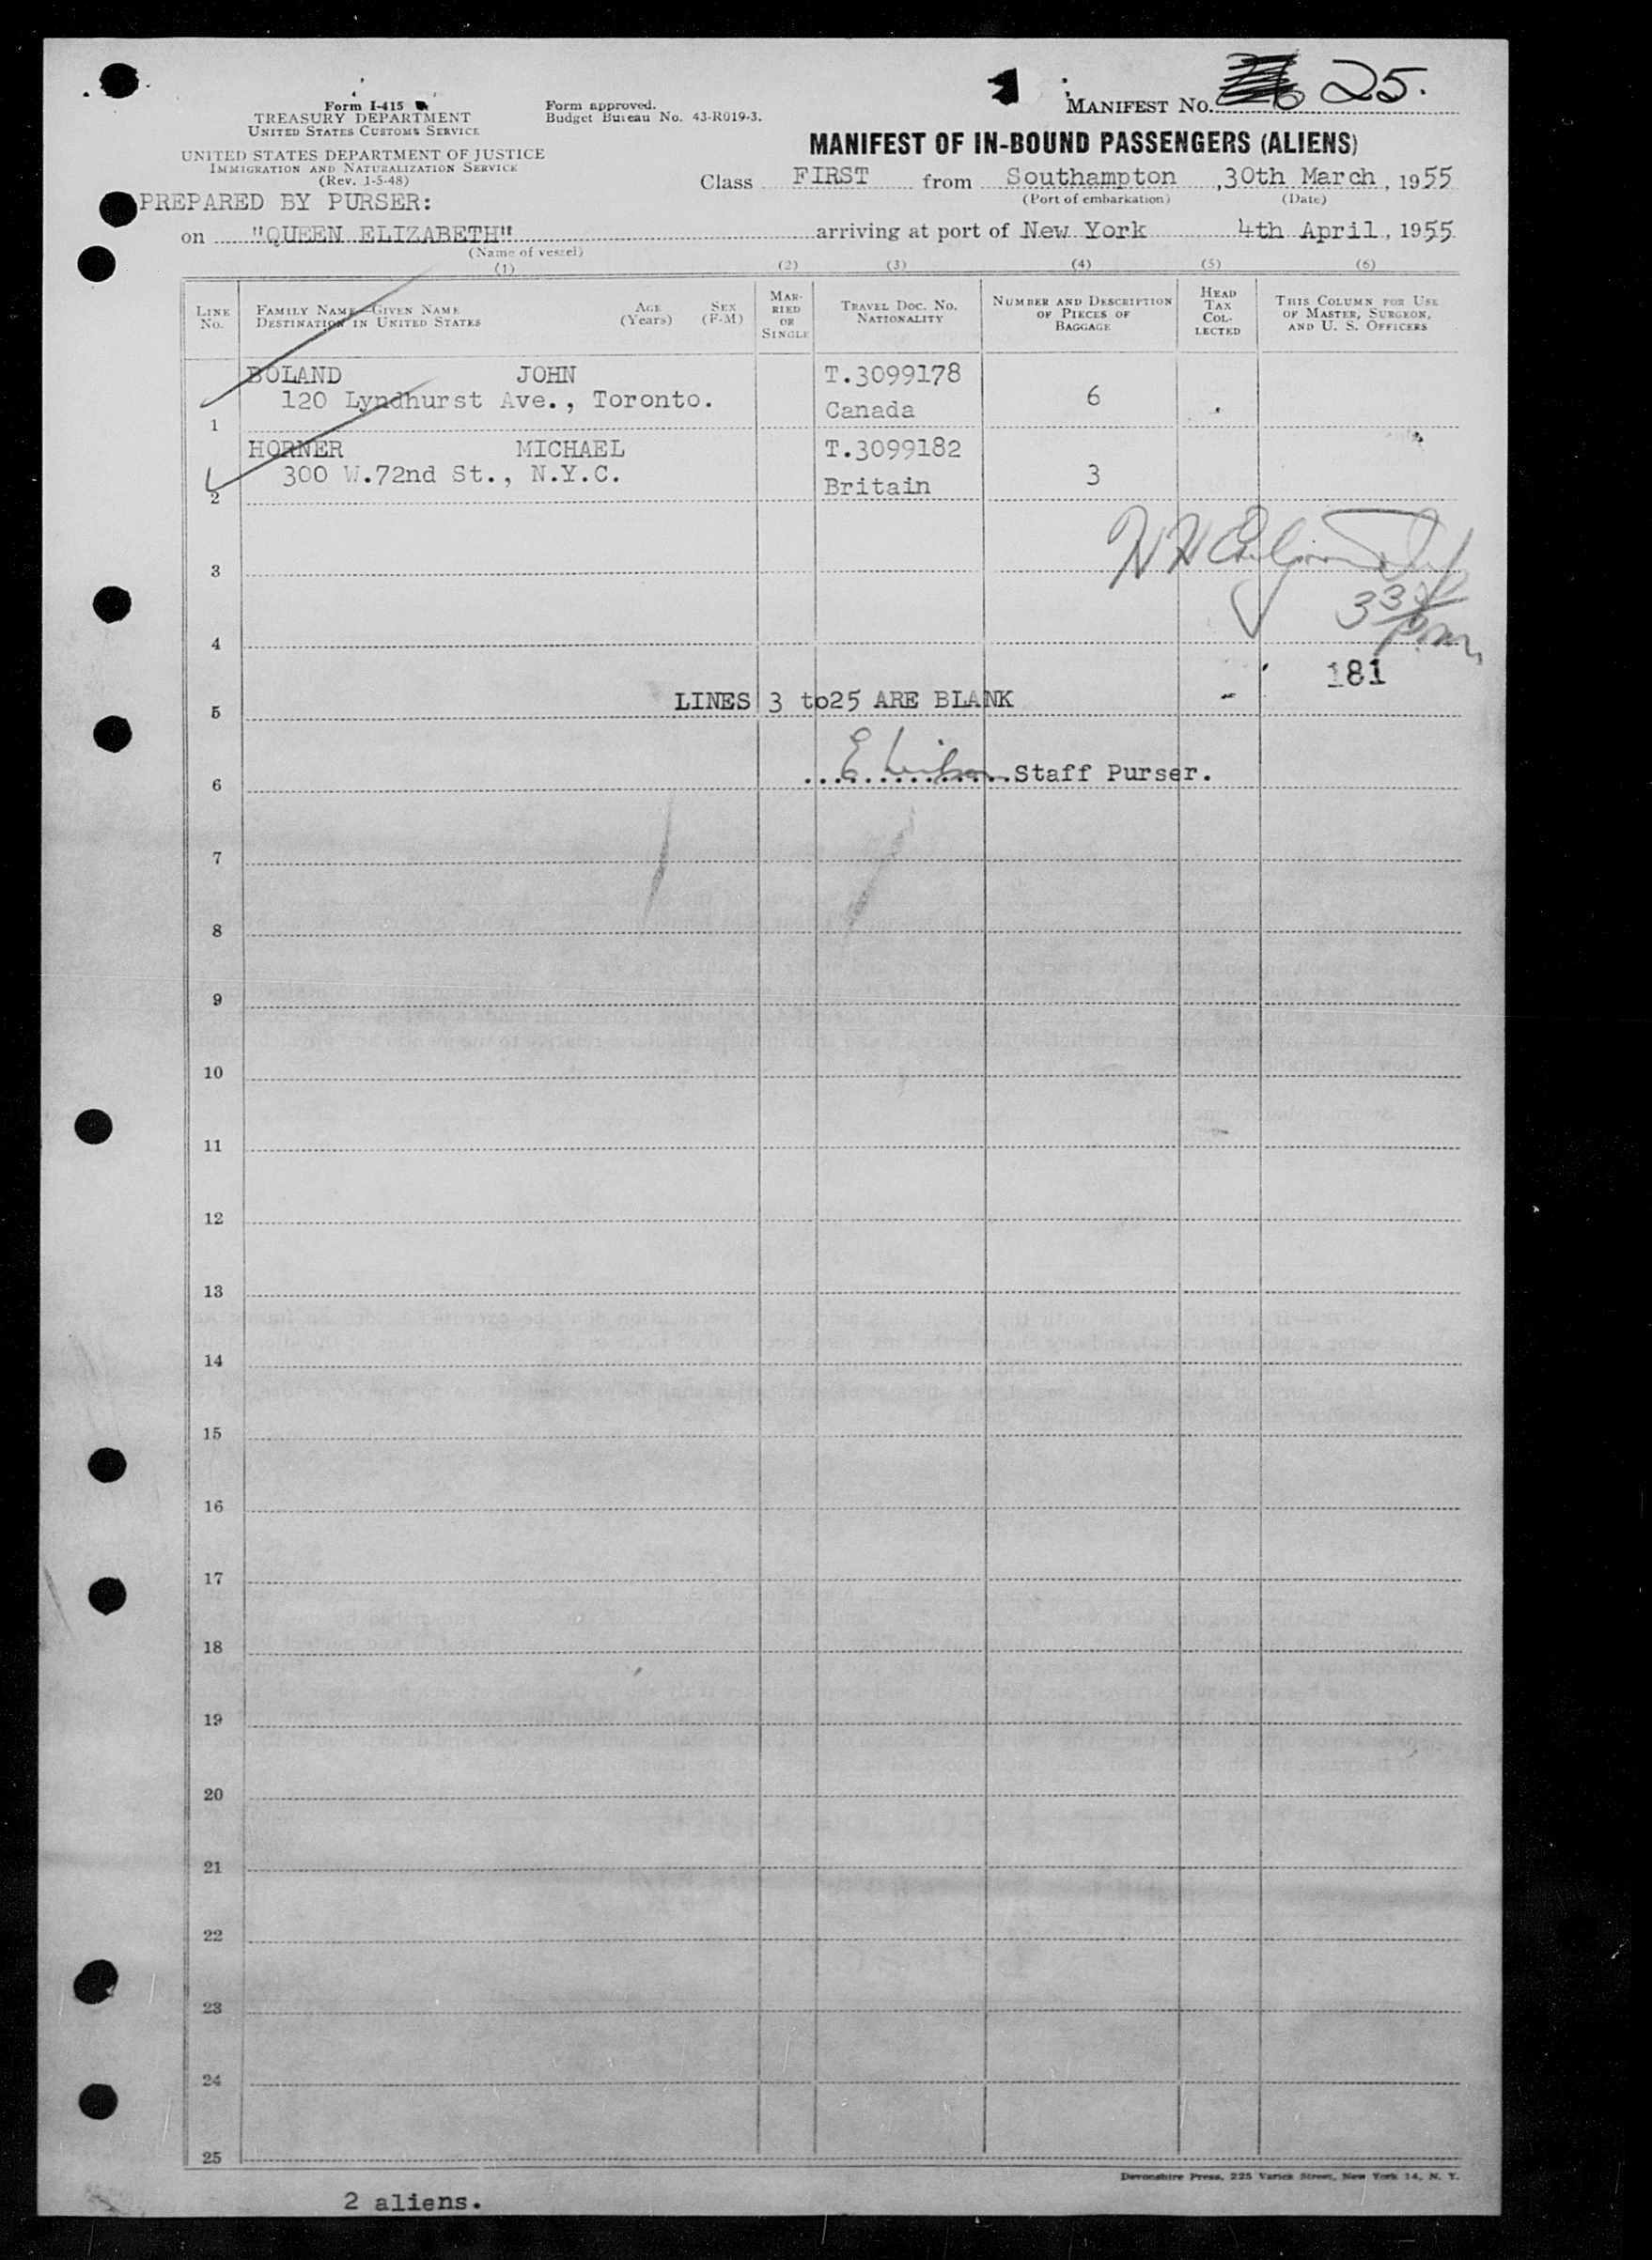 MANIFEST NO. 25.
Form I-415
TREASURY DEPARTMENT
UNITED STATES CUSTOMS SERVICE
Form approved.
Budget Bureau No. 43-R019-3.
UNITED STATES DEPARTMENT OF JUSTICE
IMMIGRATION AND NATURALIZATION SERVICE
(Rev. 1-5-48)
MANIFEST OF IN-BOUND PASSENGERS (ALIENS)
Class FIRST from Southampton, 30th March, 1955
(Port of embarkation) (Date)
PREPARED BY PURSER:
on "QUEEN ELIZABETH" arriving at port of New York 4th April, 1955
(Name of vessel)
(1) (2) (3) (4) (5) (6)
LINE No.
FAMILY NAME—GIVEN NAME
DESTINATION IN UNITED STATES
AGE (Years)
SEX (F-M)
MARRIED OR SINGLE
TRAVEL DOC. NO. NATIONALITY
NUMBER AND DESCRIPTION OF PIECES OF BAGGAGE
HEAD TAX COLLECTED
THIS COLUMN FOR USE OF MASTER, SURGEON, AND U. S. OFFICERS
BOLAND JOHN T.3099178
120 Lyndhurst Ave., Toronto. Canada 6
1
HORNER MICHAEL T.3099182
300 W.72nd St., N.Y.C. Britain 3
2
3
4
181
LINES 3 to25 ARE BLANK
5
E Wilson Staff Purser.
6
7
8
9
10
11
12
13
14
15
16
17
18
19
20
21
22
23
24
25
Devonshire Press, 225 Varick Street, New York 14, N. Y.
2 aliens.